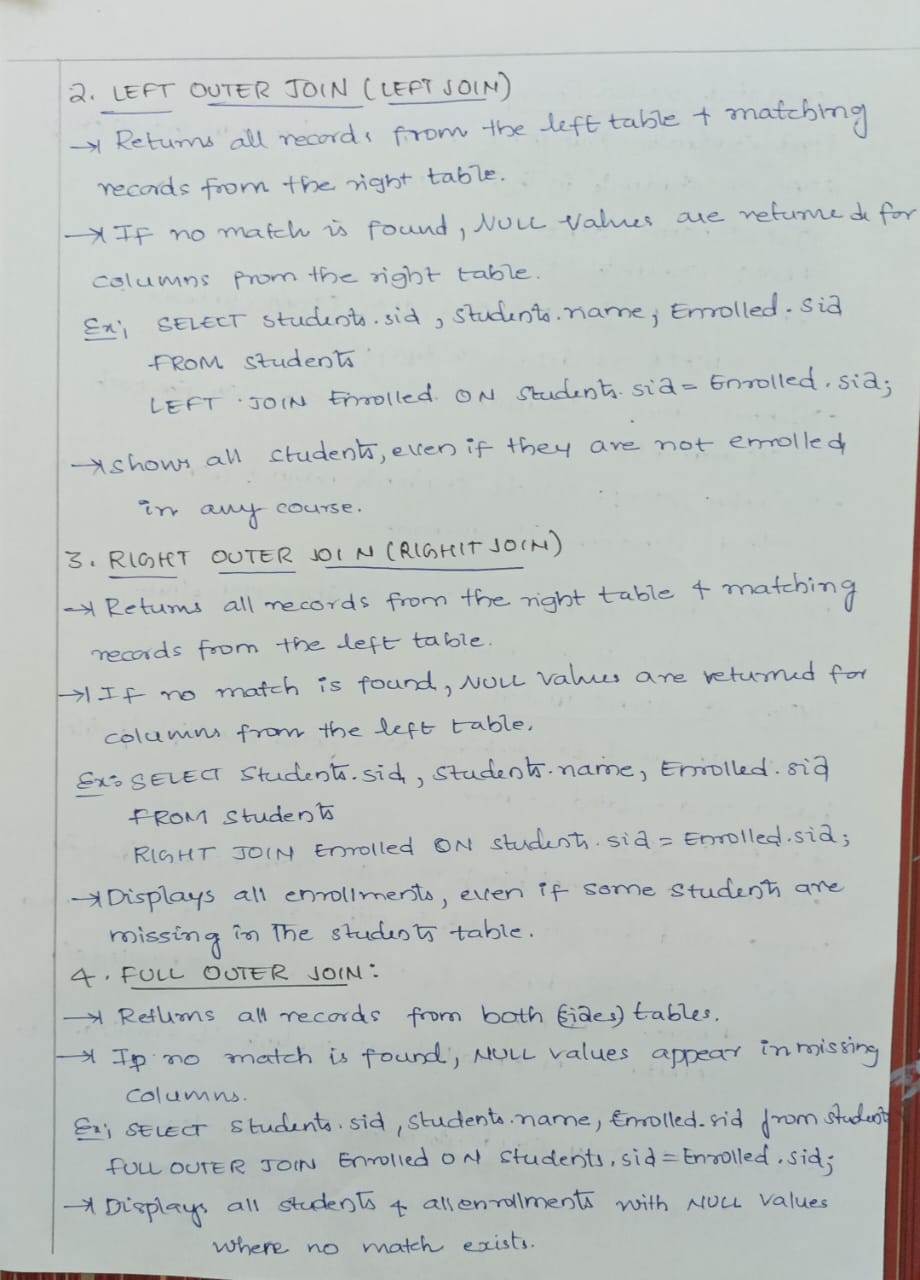 2. LEFT OUTER JOIN (LEFT JOIN)
→ Returns all records from the left table + matching
records from the right table.
→ If no match is found, NULL values are returned for
columns from the right table.
Ex; SELECT students.sid, students.name, Enrolled.sid
FROM students
LEFT JOIN Enrolled ON students.sid = Enrolled.sid;
→ shows all students, even if they are not enrolled
in any course.
3. RIGHT OUTER JOIN (RIGHIT JOIN)
→ Returns all records from the right table & matching
records from the left table.
→ If no match is found, NULL values are returned for
columns from the left table.
Ex: SELECT students.sid, students.name, Enrolled.sid
FROM students
RIGHT JOIN Enrolled ON students.sid = Enrolled.sid;
→ Displays all enrollments, even if some students are
missing in The students table.
4. FULL OUTER JOIN:
→ Returns all records from both (sides) tables.
→ If no match is found, NULL values appear in missing
columns.
Ex; SELECT students.sid, students.name, Enrolled.sid from students
FULL OUTER JOIN Enrolled ON students.sid = Enrolled.sid;
→ Displays all students & all enrollments with NULL values
where no match exists.